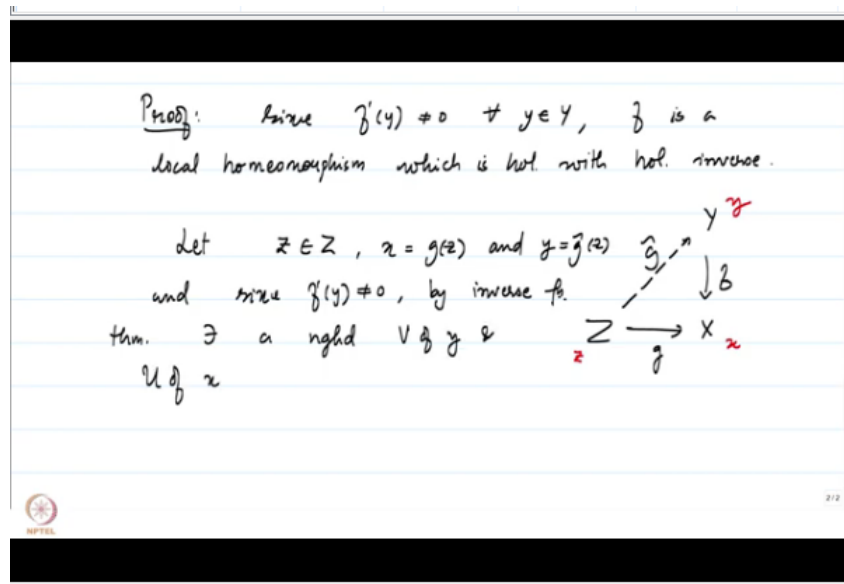 Proof: Since f'(y) ≠ 0 ∀ y ∈ Y, f is a
local homeomorphism which is hol. with hol. inverse.
Let z ∈ Z, x = g(z) and y = g̃(z)
and since f'(y) ≠ 0, by inverse fn.
thm. ∃ a nghd V of y &
U of x
Y y
g̃ f
Z X x
z g
2/2
NPTEL